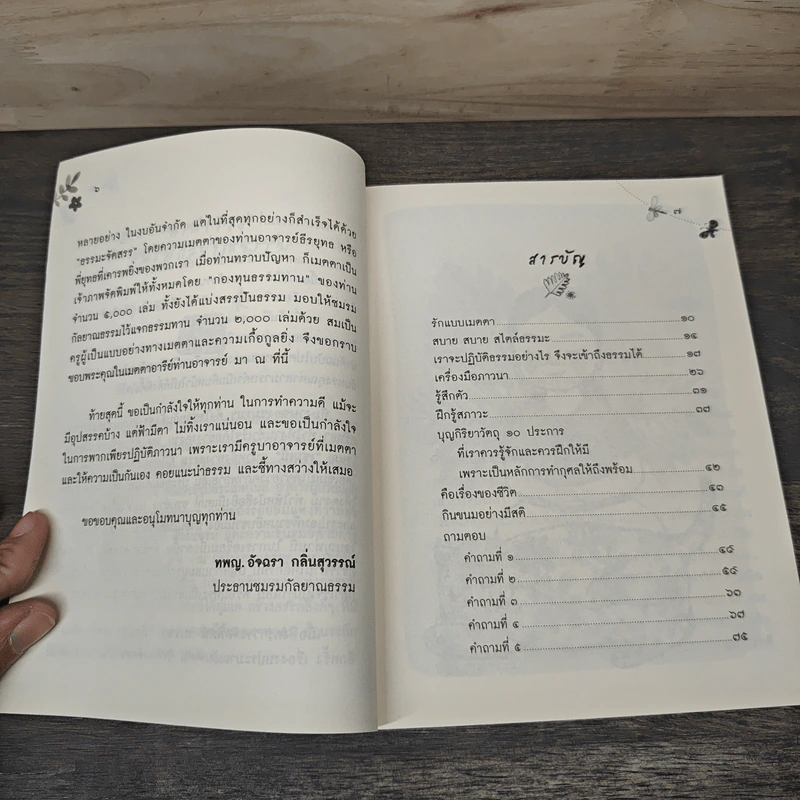 ๖
หลายอย่าง ในงบอันจำกัด แต่ในที่สุดทุกอย่างก็สำเร็จได้ด้วย
"ธรรมะจัดสรร" โดยความเมตตาของท่านอาจารย์ธีรยุทธ หรือ
พี่ยุทธที่เคารพยิ่งของพวกเรา เมื่อท่านทราบปัญหา ก็เมตตาเป็น
เจ้าภาพจัดพิมพ์ให้ทั้งหมดโดย "กองทุนธรรมทาน" ของท่าน
จำนวน ๕,๐๐๐ เล่ม ทั้งยังได้แบ่งสรรปันธรรม มอบให้ชมรม
กัลยาณธรรมไว้แจกธรรมทาน จำนวน ๒,๐๐๐ เล่มด้วย สมเป็น
ครูผู้เป็นแบบอย่างทางเมตตาและความเกื้อกูลยิ่ง จึงขอกราบ
ขอบพระคุณในเมตตาอารีย์ท่านอาจารย์ มา ณ ที่นี้
ท้ายสุดนี้ ขอเป็นกำลังใจให้ทุกท่าน ในการทำความดี แม้จะ
มีอุปสรรคบ้าง แต่ฟ้ามีตา ไม่ทิ้งเราแน่นอน และขอเป็นกำลังใจ
ในการพากเพียรปฏิบัติภาวนา เพราะเรามีครูบาอาจารย์ที่เมตตา
และให้ความเป็นกันเอง คอยแนะนำธรรม และชี้ทางสว่างให้เสมอ
ขอขอบคุณและอนุโมทนาบุญทุกท่าน
ทพญ. อัจฉรา กลิ่นสุวรรณ์
ประธานชมรมกัลยาณธรรม
๗
สารบัญ
รักแบบเมตตา ๑๐
สบาย สบาย สไตล์ธรรมะ ๑๔
เราจะปฏิบัติธรรมอย่างไร จึงจะเข้าถึงธรรมได้ ๑๗
เครื่องมือภาวนา ๒๖
รู้สึกตัว ๓๑
ฝึกรู้สภาวะ ๓๗
บุญกิริยาวัตถุ ๑๐ ประการ
ที่เราควรรู้จักและควรฝึกให้มี
เพราะเป็นหลักการทำกุศลให้ถึงพร้อม ๔๒
คือเรื่องของชีวิต ๕๑
กินขนมอย่างมีสติ ๕๕
ถามตอบ
คำถามที่ ๑ ๕๙
คำถามที่ ๒ ๕๙
คำถามที่ ๓ ๖๑
คำถามที่ ๔ ๖๗
คำถามที่ ๕ ๗๕